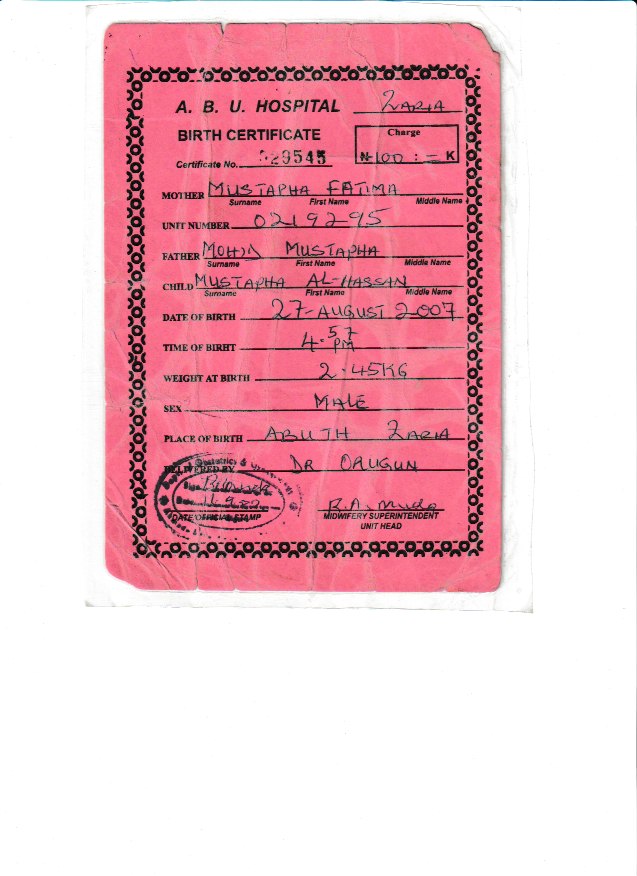 A. B. U. HOSPITAL ZARIA
BIRTH CERTIFICATE
Charge
Certificate No. 29545
₦100 : = K
MOTHER MUSTAPHA FATIMA
Surname First Name Middle Name
UNIT NUMBER 0219295
FATHER MUSTAPHA
Surname First Name Middle Name
CHILD MUSTAPHA AL-HASSAN
Surname First Name Middle Name
DATE OF BIRTH 27-AUGUST 2007
TIME OF BIRHT 4.57 PM
WEIGHT AT BIRTH 2.45KG
SEX MALE
PLACE OF BIRTH ABUTH ZARIA
DELIVERED BY DR ORUGUN
Obstetrics &
Sign
Date
DATE/OFFICIAL STAMP
MIDWIFERY SUPERINTENDENT
UNIT HEAD